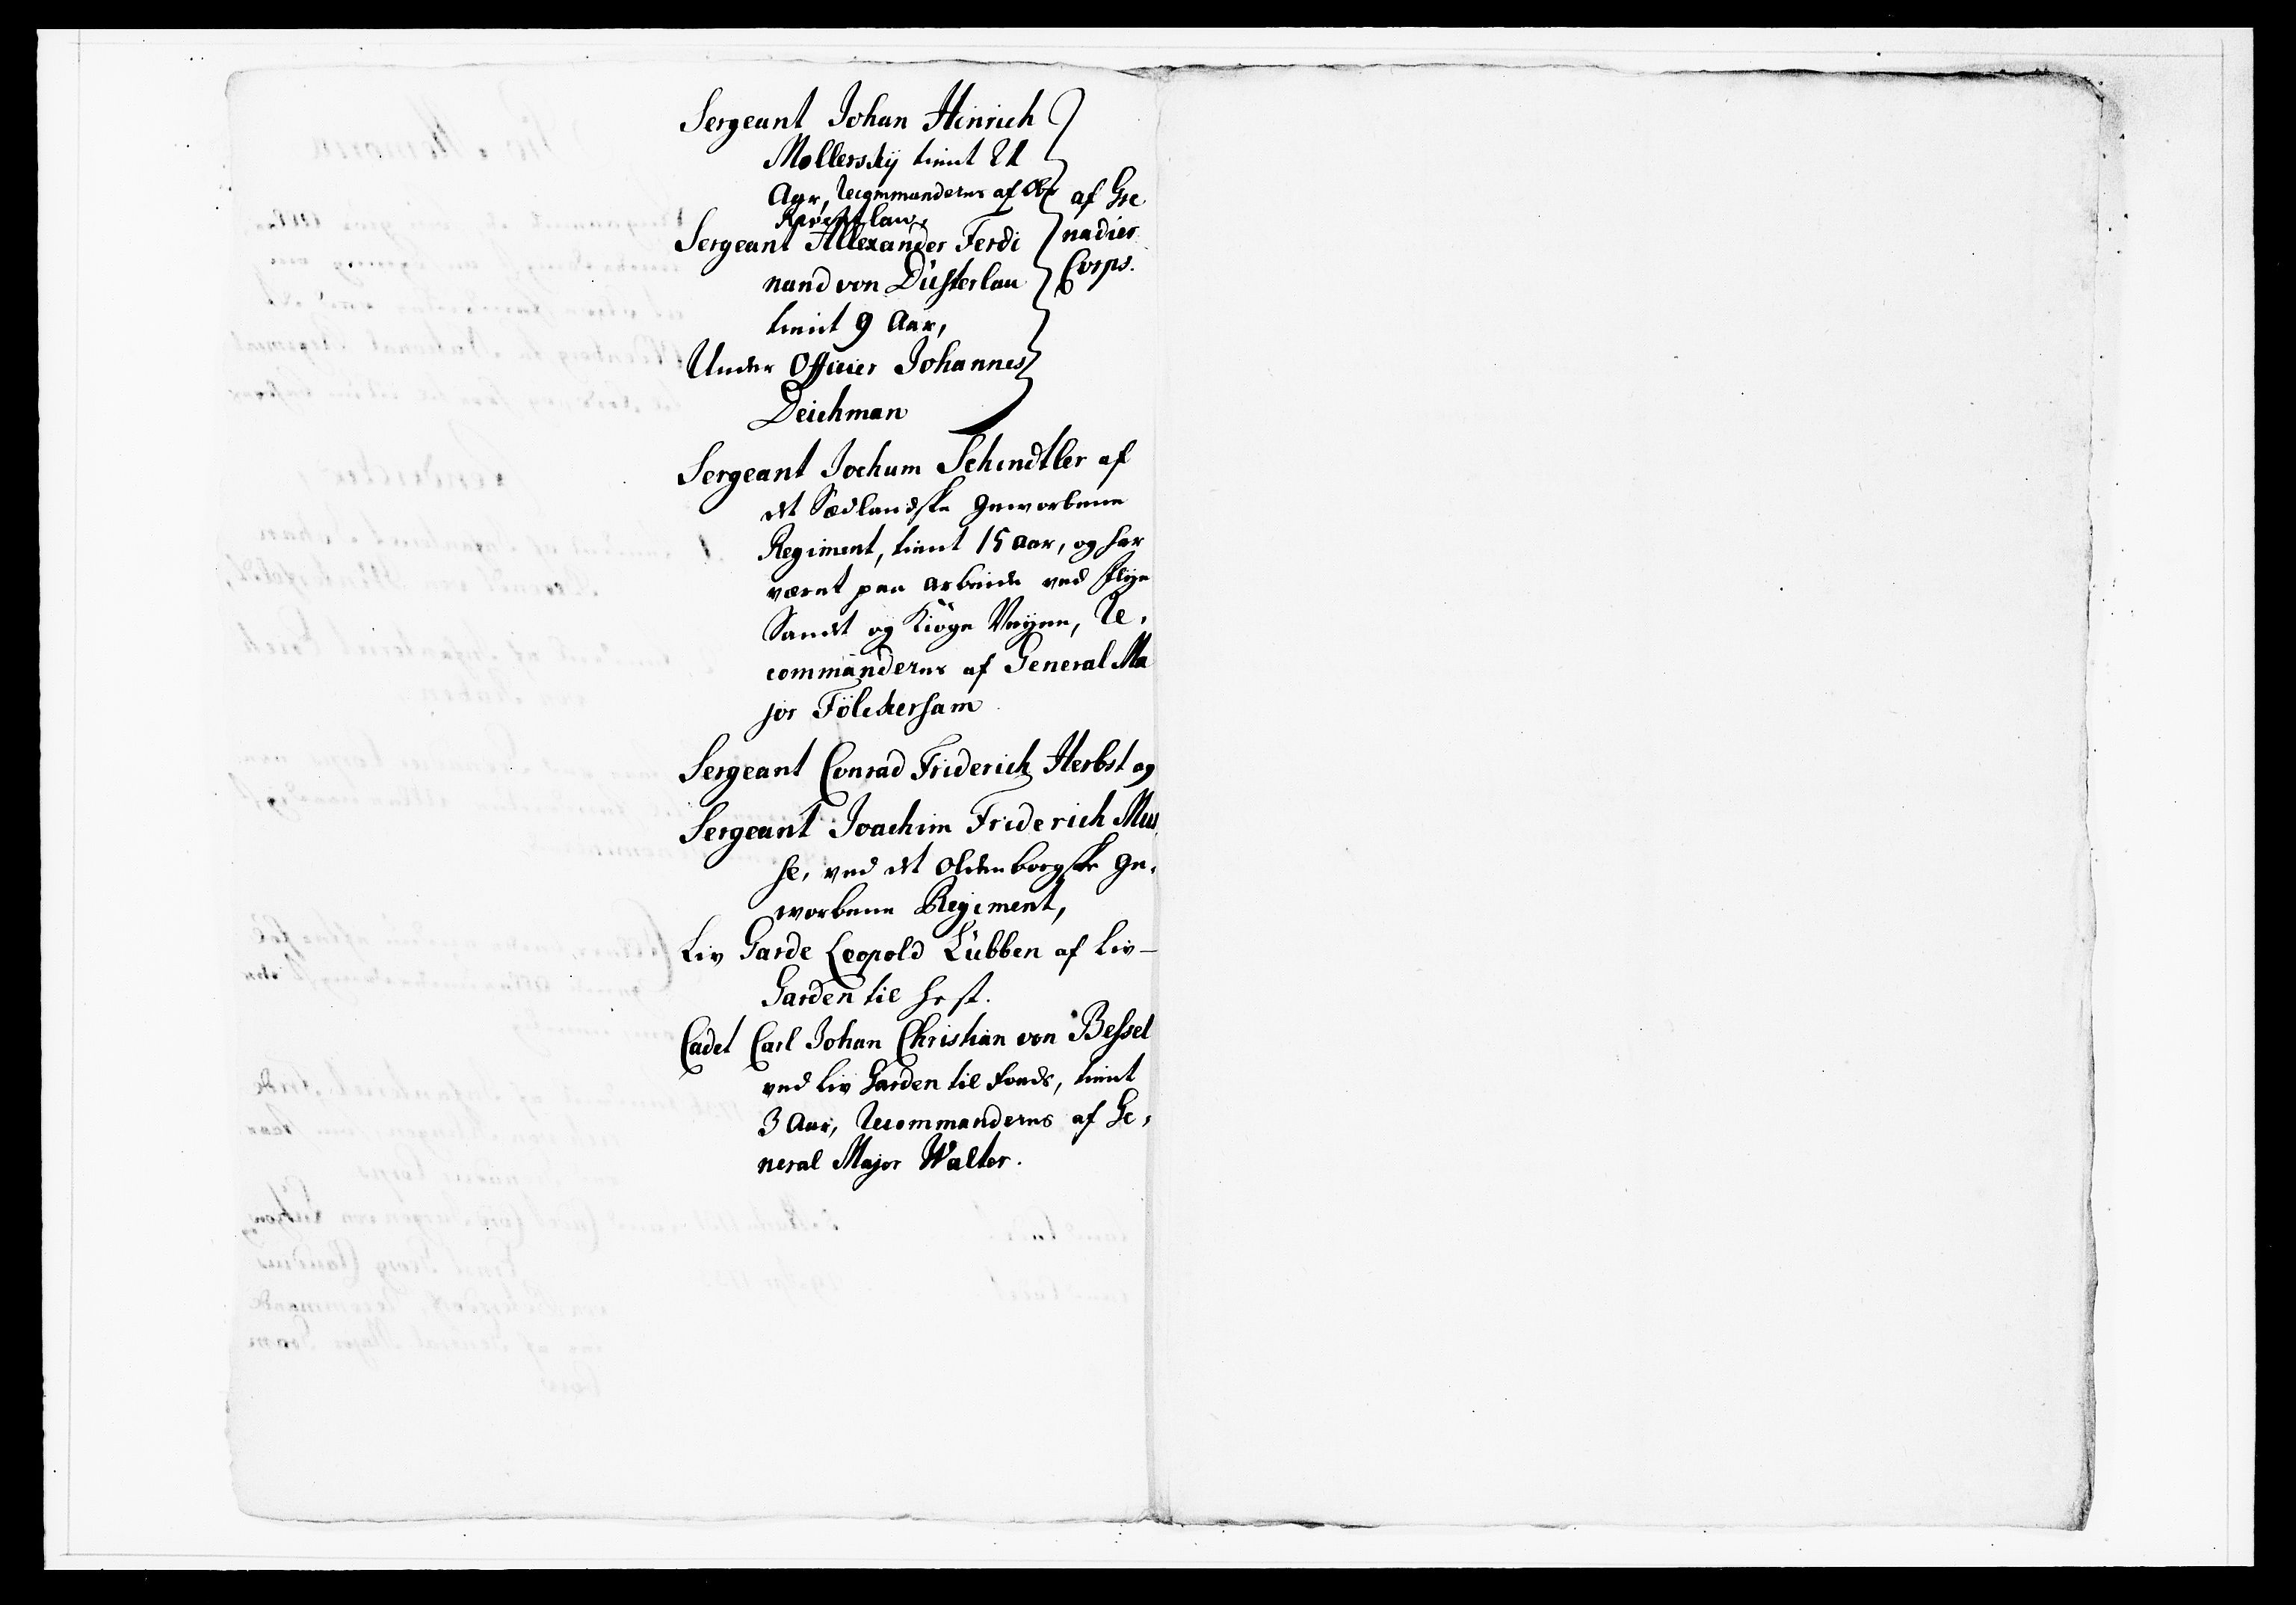 Sergeant Johan Hinrich
Mollerskÿ tient 21
Aar, Recommanderes af Obr
Reventlau,
af Gre
nadier
Corps.
Sergeant Allexander Ferdi
nand von Düsterlau
tient 9 Aar,
Under Officier Johannes
Deichman
Sergeant Jochum Schindtler af
det Siædlandske geworbene
Regiment, tient 15 aar, og har
været paa arbeide ved flÿe
Sandet og Kiöge Veÿen, Re,
commanderes af General Ma
jor Fölckersam
Sergeant Conrad Friderich Herbst og
Sergeant Joachim Friderich Mus
se, ved det Oldenborgske ge,
worbene Regiment,
Liv Garde Leopold Lübben af Liv-
Garden til Hest.
Cadet Carl Johan Christian von Bessel
ved Liv Garden til Foeds, tient
3 Aar, Recommanderes af Ge,
neral Major Walter.